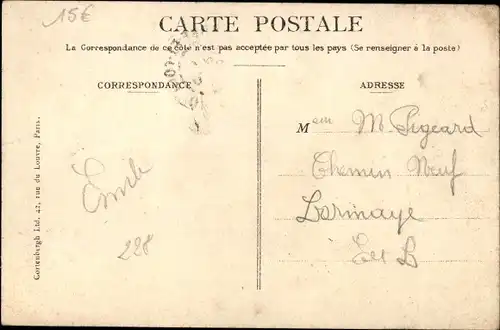 15€
CARTE POSTALE
La Correspondance de ce côté n'est pas acceptée par tous les pays (Se renseigner à la poste)
CORRESPONDANCE
ADRESSE
Mem M Pigeard
Chemin Neuf
Lormaye
E et L
Emile
228
Gottenbergh Ltd. 42, rue du Louvre, Paris.